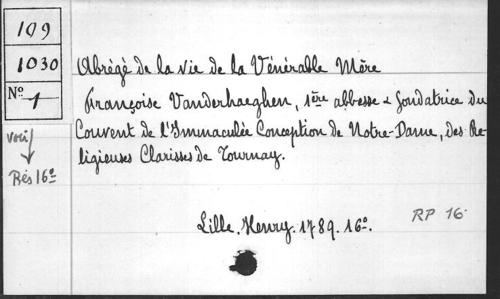 109
1030
N° 1
voir
Rés 16°
Abrégé de la vie de la Vénérable Mère
Françoise Vanderhaeghen, 1ère abbesse & fondatrice du
Couvent de l'Immaculée Conception de Notre-Dame, des Re-
ligieuses Clarisses de Tournay.
Lille. Henry. 1789. 16°.
RP 16